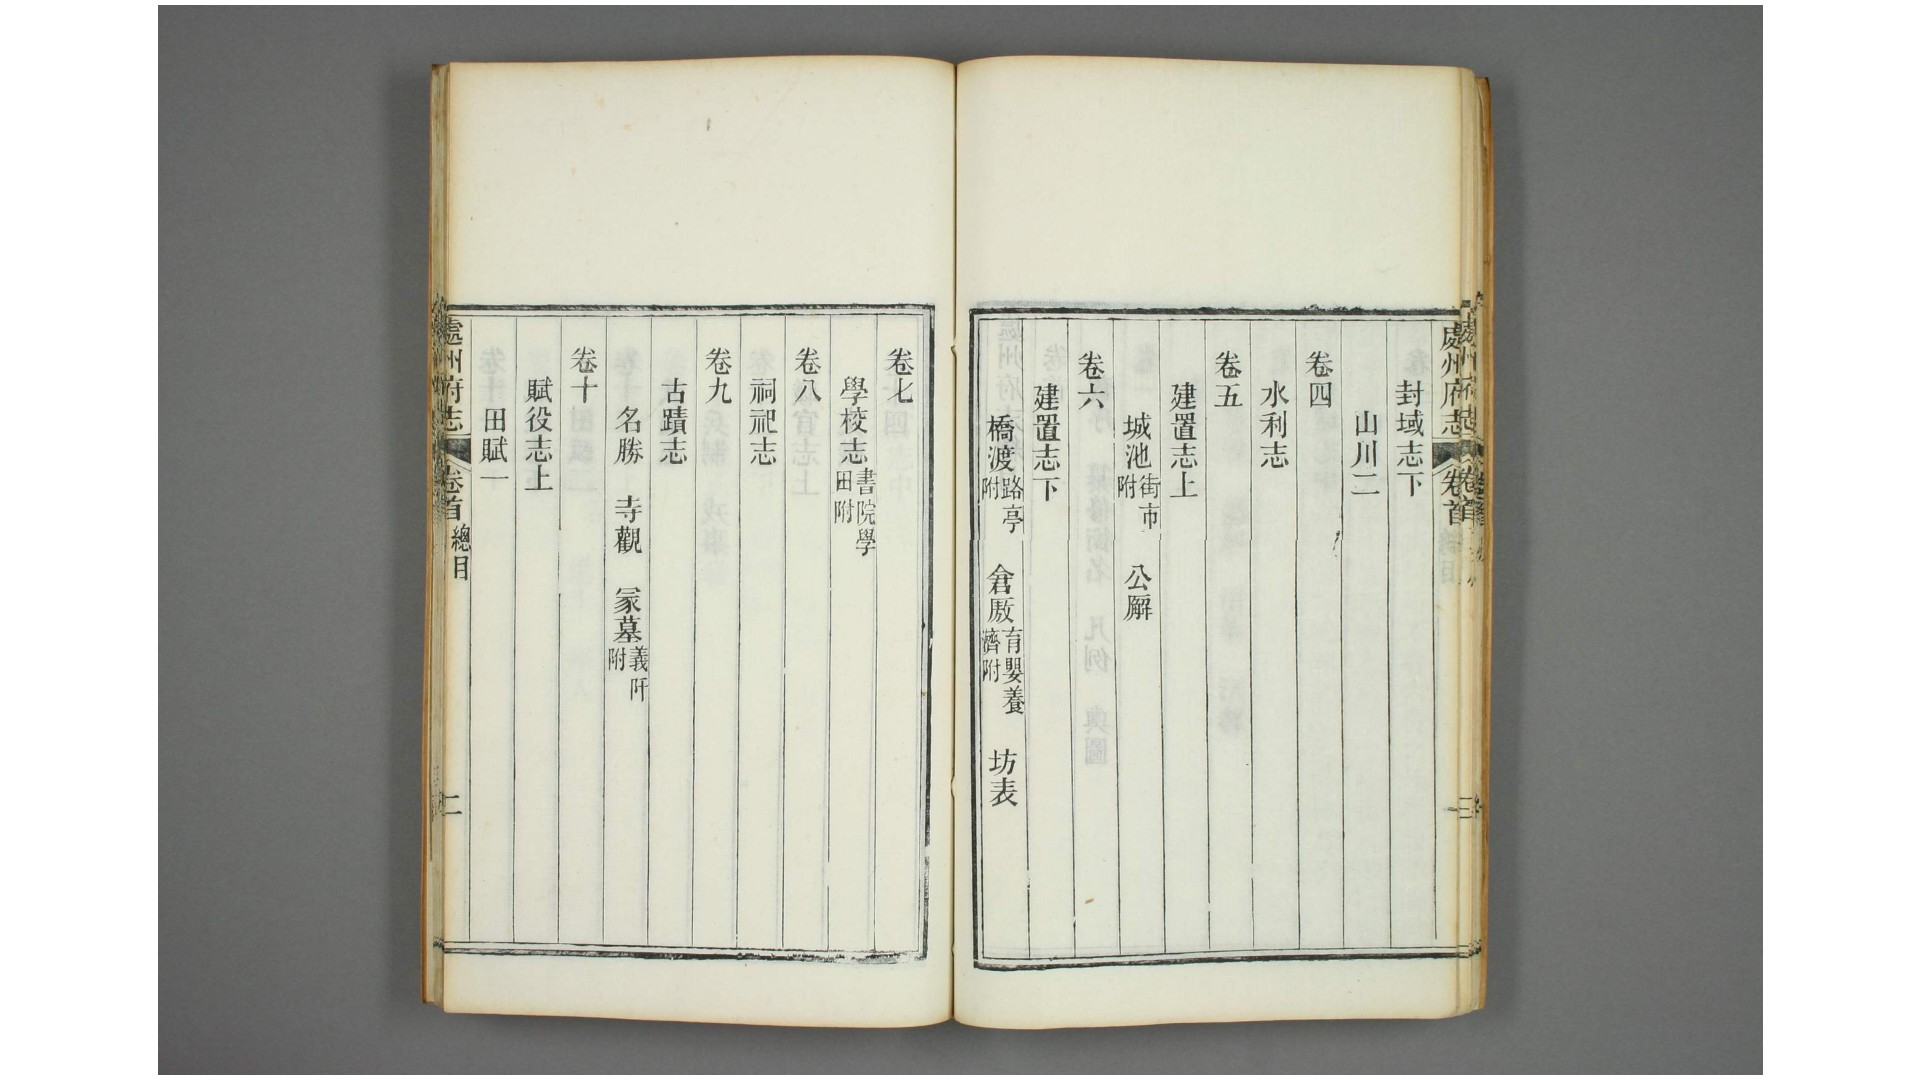 處州府志 卷首
封域志下
山川二
卷四
水利志
卷五
建置志上
城池街市附 公廨
卷六
建置志下
橋渡路亭附 倉厫育嬰養濟附 坊表
卷七
學校志書院學田附
卷八
祠祀志
卷九
古蹟志
名勝 寺觀 冢墓義阡附
卷十
賦役志上
田賦一
處州府志 卷首 總目 二